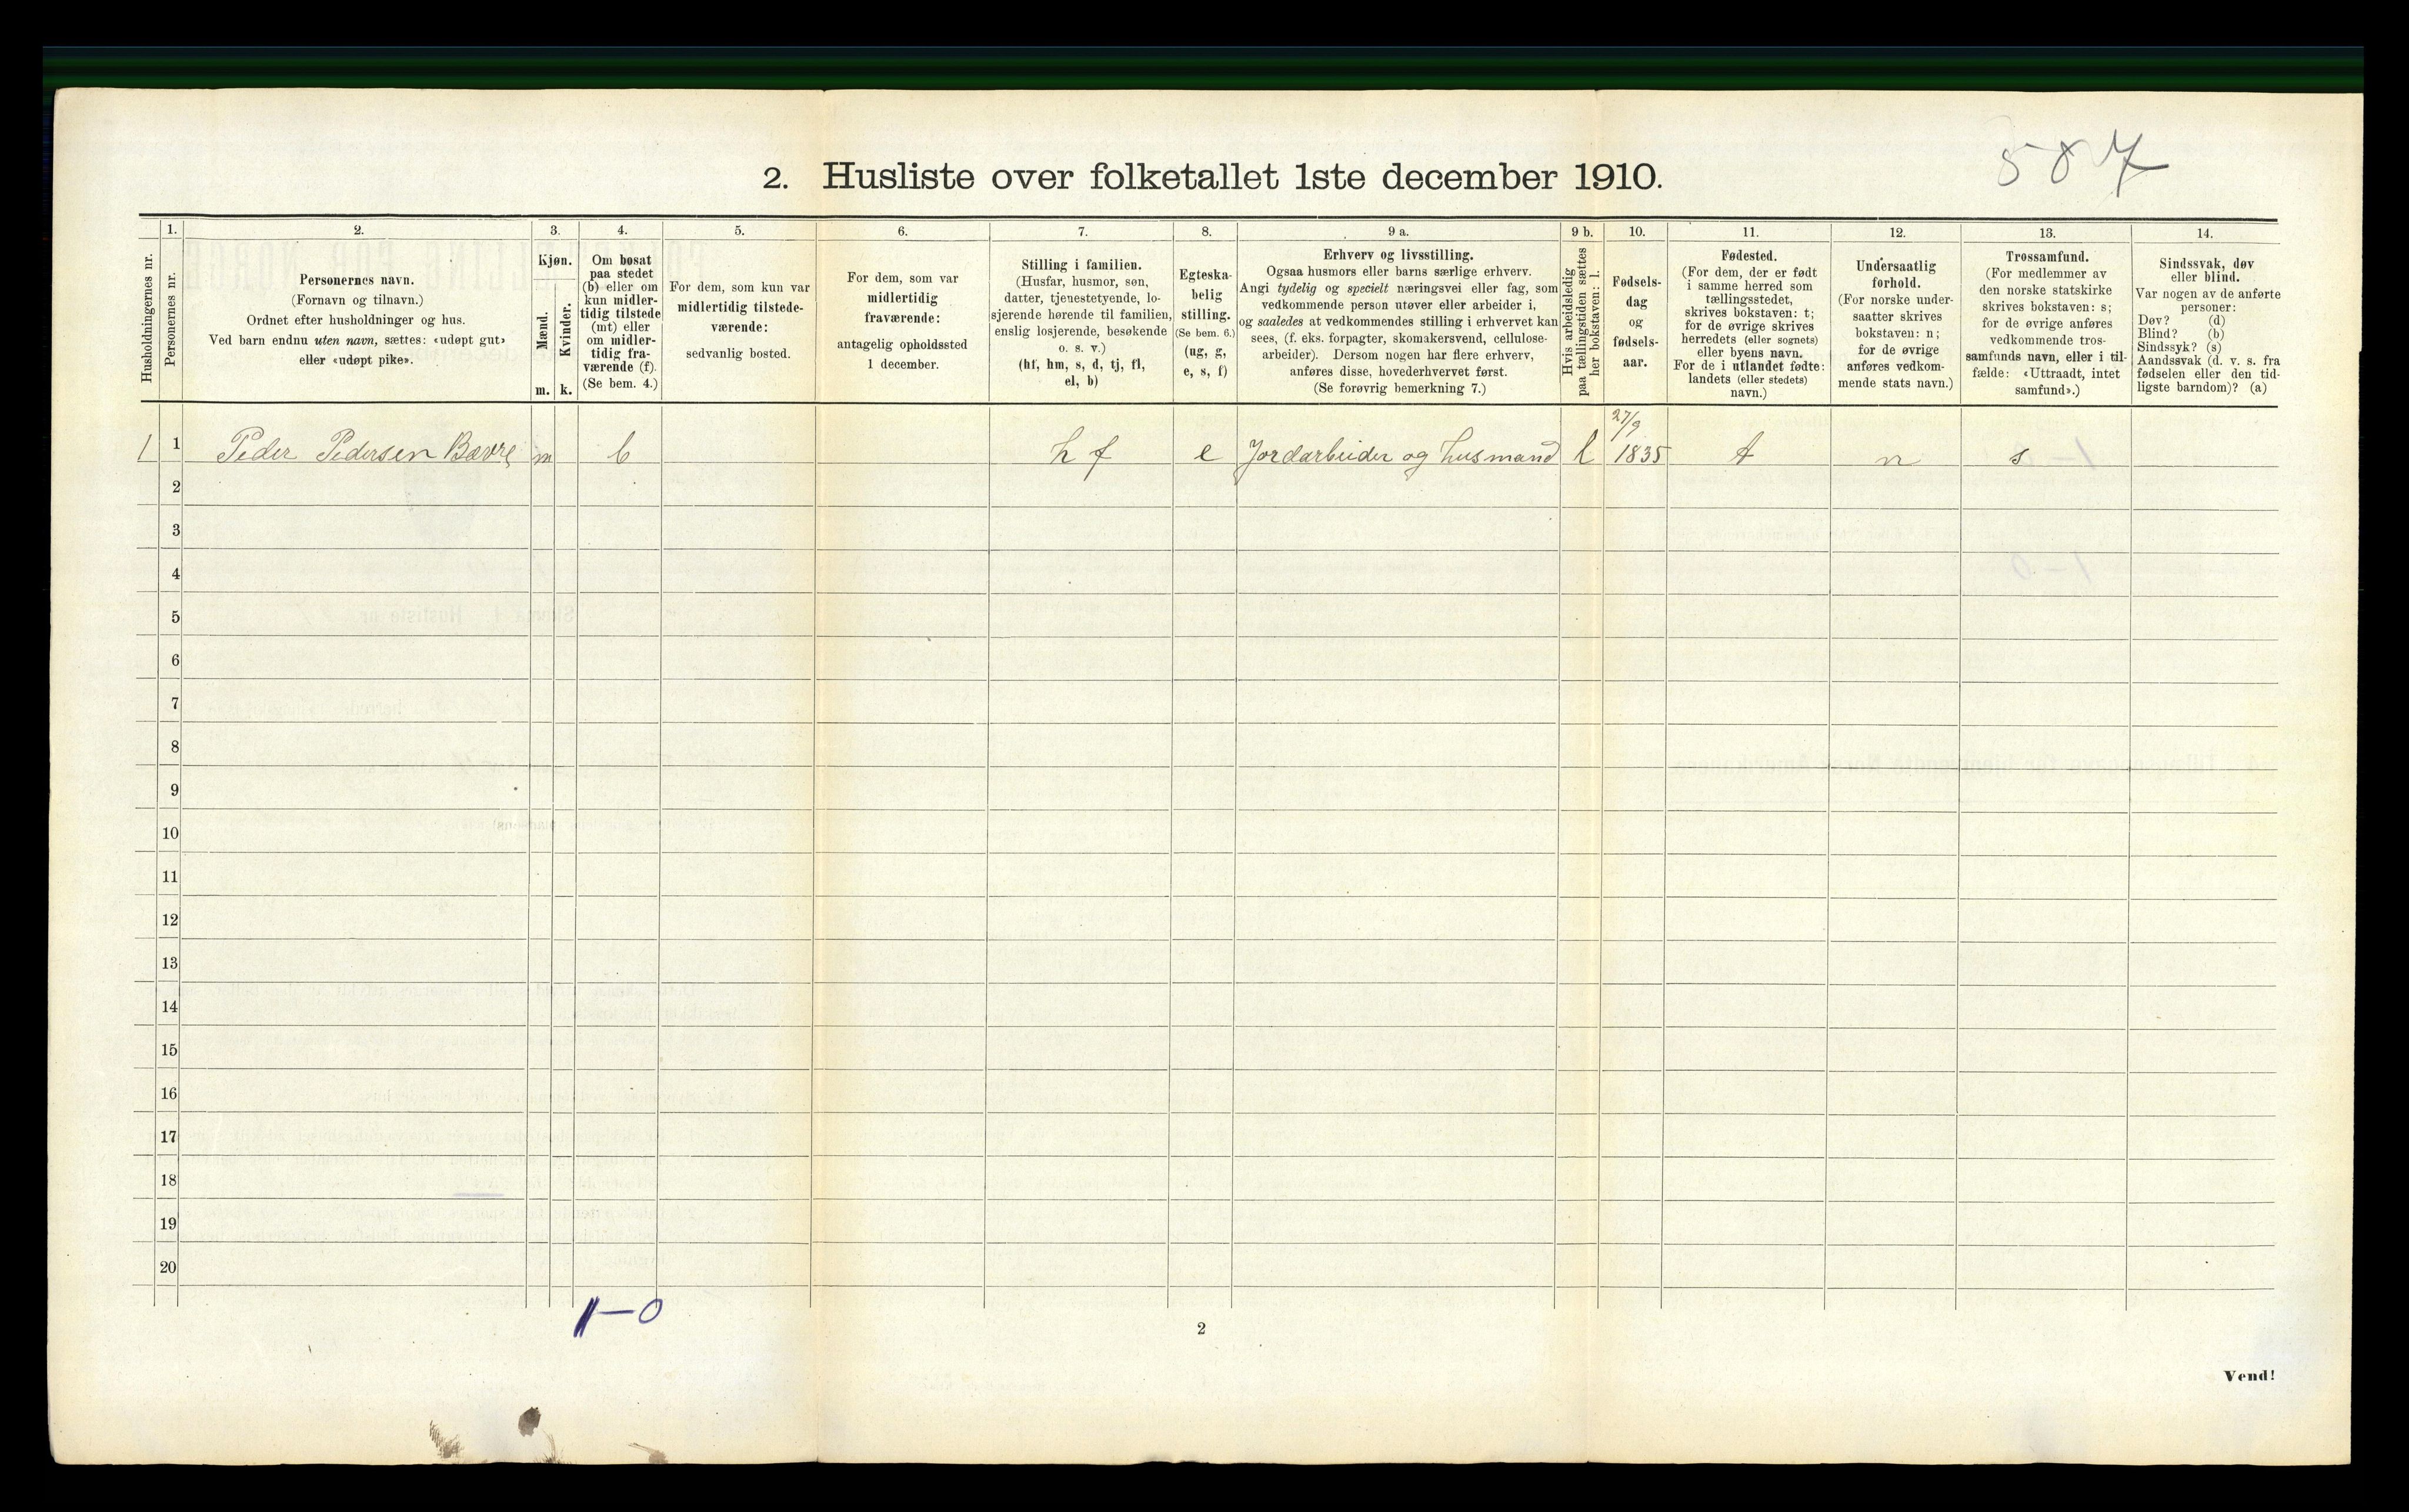 587
2. Husliste over folketallet 1ste december 1910.
Husholdningernes nr.
1.
Personernes nr.
2.
Personernes navn.
(Fornavn og tilnavn.)
Ordnet efter husholdninger og hus.
Ved barn endnu uten navn, sættes: «udøpt gut»
eller «udøpt pike».
3.
Kjøn.
Mænd.
m.
Kvinder.
k.
4.
Om bosat
paa stedet
(b) eller om
kun midler-
tidig tilstede
(mt) eller
om midler-
tidig fra-
værende (f).
(Se bem. 4.)
5.
For dem, som kun var
midlertidig tilstede-
værende:
sedvanlig bosted.
6.
For dem, som var
midlertidig
fraværende:
antagelig opholdssted
1 december.
7.
Stilling i familien.
(Husfar, husmor, søn,
datter, tjenestetyende, lo-
sjerende hørende til familien,
enslig losjerende, besøkende
o. s. v.)
(hf, hm, s, d, tj, fl,
el, b)
8.
Egteska-
belig
stilling.
(Se bem. 6.)
(ug, g,
e, s, f)
9 a.
Erhverv og livsstilling.
Ogsaa husmors eller barns særlige erhverv.
Angi tydelig og specielt næringsvei eller fag, som
vedkommende person utøver eller arbeider i,
og saaledes at vedkommendes stilling i erhvervet kan
sees, (f. eks. forpagter, skomakersvend, cellulose-
arbeider). Dersom nogen har flere erhverv,
anføres disse, hovederhvervet først.
(Se forøvrig bemerkning 7.)
9 b.
Hvis arbeidsledig
paa tællingstiden sættes
her bokstaven: l.
10.
Fødsels-
dag
og
fødsels-
aar.
11.
Fødested.
(For dem, der er født
i samme herred som
tællingsstedet,
skrives bokstaven: t;
for de øvrige skrives
herredets (eller sognets)
eller byens navn.
For de i utlandet fødte:
landets (eller stedets)
navn.)
12.
Undersaatlig
forhold.
(For norske under-
saatter skrives
bokstaven: n;
for de øvrige
anføres vedkom-
mende stats navn.)
13.
Trossamfund.
(For medlemmer av
den norske statskirke
skrives bokstaven: s;
for de øvrige anføres
vedkommende tros-
samfunds navn, eller i til-
fælde: «Uttraadt, intet
samfund».)
14.
Sindssvak, døv
eller blind.
Var nogen av de anførte
personer:
Døv? (d)
Blind? (b)
Sindssyk? (s)
Aandssvak (d. v. s. fra
fødselen eller den tid-
ligste barndom)? (a)
1 1 Peder Pedersen Bævre m b hf e Jordarbeider og husmand l 27/9 1835 t n s
2
3
4
5
6
7
8
9
10
11
12
13
14
15
16
17
18
19
20
1-0
2
Vend!